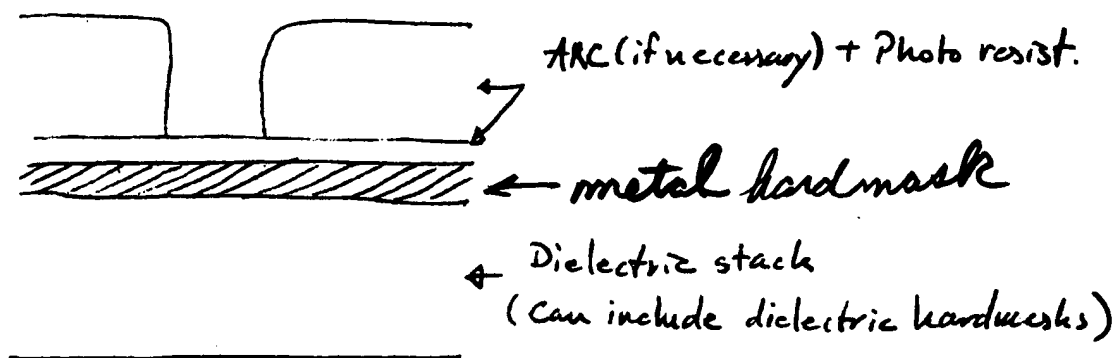 ARC (if necessary) + Photo resist.
metal hardmask
Dielectric stack
(Can include dielectric hardmasks)